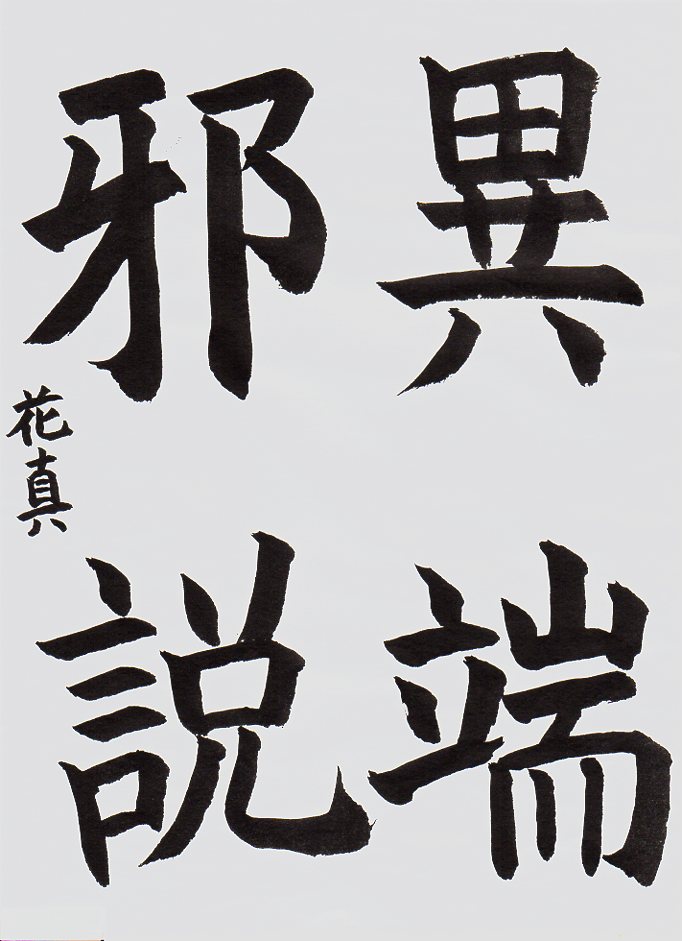 異端
邪説
花真